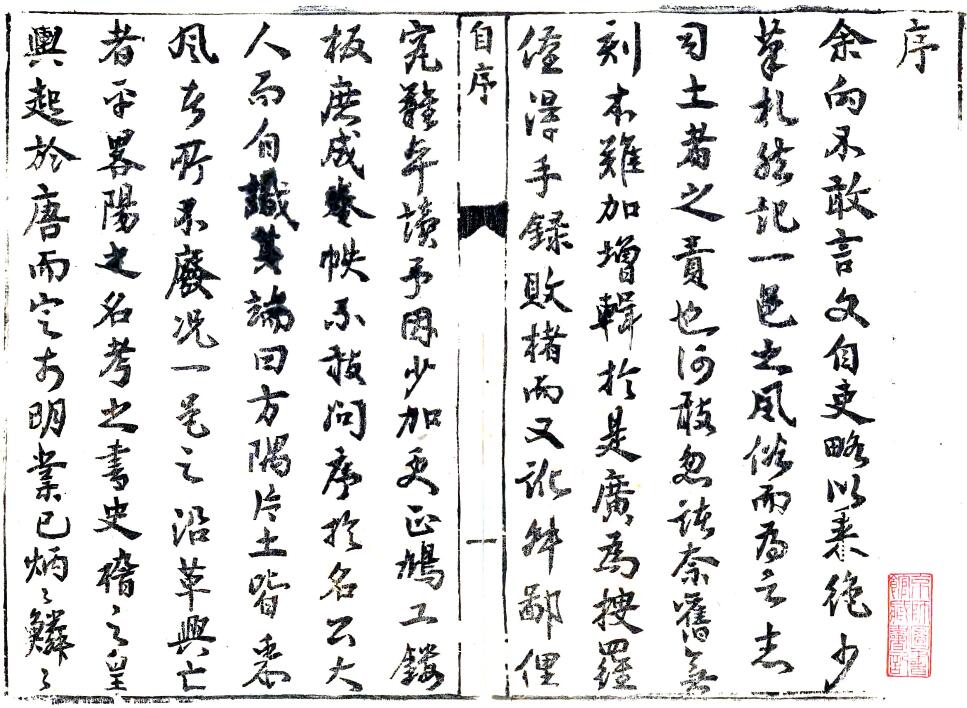 序
余向不敢言文自吏略以來絶少
筆札然記一邑之風俗而為之志
司土者之責也何敢忽諸奈舊無
刻本難加增輯於是廣為搜羅
僅得手錄敗楮而又訛舛鄙俚
自序
一
究難卒讀予因少加更正鳩工鏤
板庶成卷帙不敢問序於名公大
人而自識其端曰方隅片土皆秉
風者所不廢况一邑之沿革興亡
者乎畧陽之名考之書史稽之皇
輿起於唐而定于明業已炳炳鱗鱗